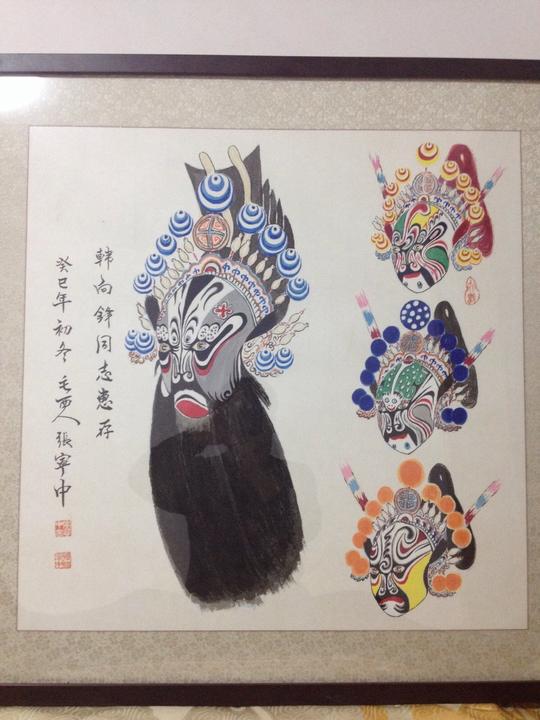 韩向锋同志惠存
癸巳年初冬毛西人張寧中